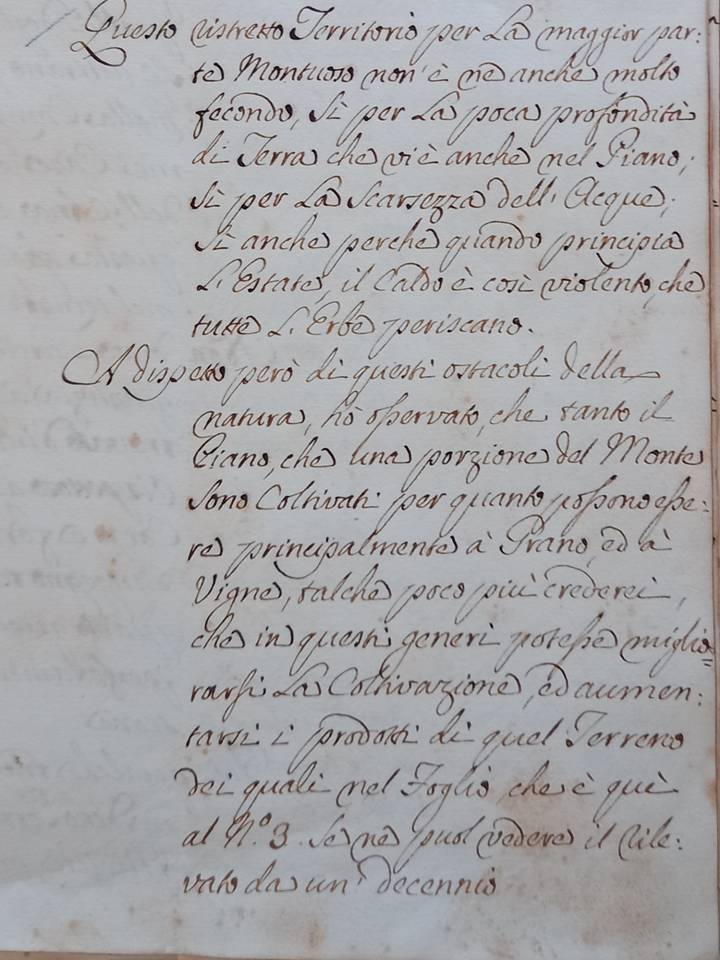 Questo ristretto Territorio per La maggior par:
te Montuoso non' è ne anche molto
fecondo, Sì per La poca profondità
di Terra che vi è anche nel Piano;
Sì per La Scarsezza dell' Acque;
Sì anche perche quando principia
L'Estate, il Caldo è così violento, che
tutte L'Erbe periscano.
A dispetto però di questi ostacoli della
natura, hò osservato, che tanto il
Piano, che una porzione del Monte
Sono Coltivati per quanto possono esse:
re principalmente à Grano, ed à
Vigne, talche poco più crederei,
che in questi generi potesse miglio=
rarsi La Coltivazione, ed aumen:
tarsi i prodotti di quel Terreno
dei quali nel Foglio che è quì
al N.º 3. Se ne puol vedere il rile:
vato da un' decennio